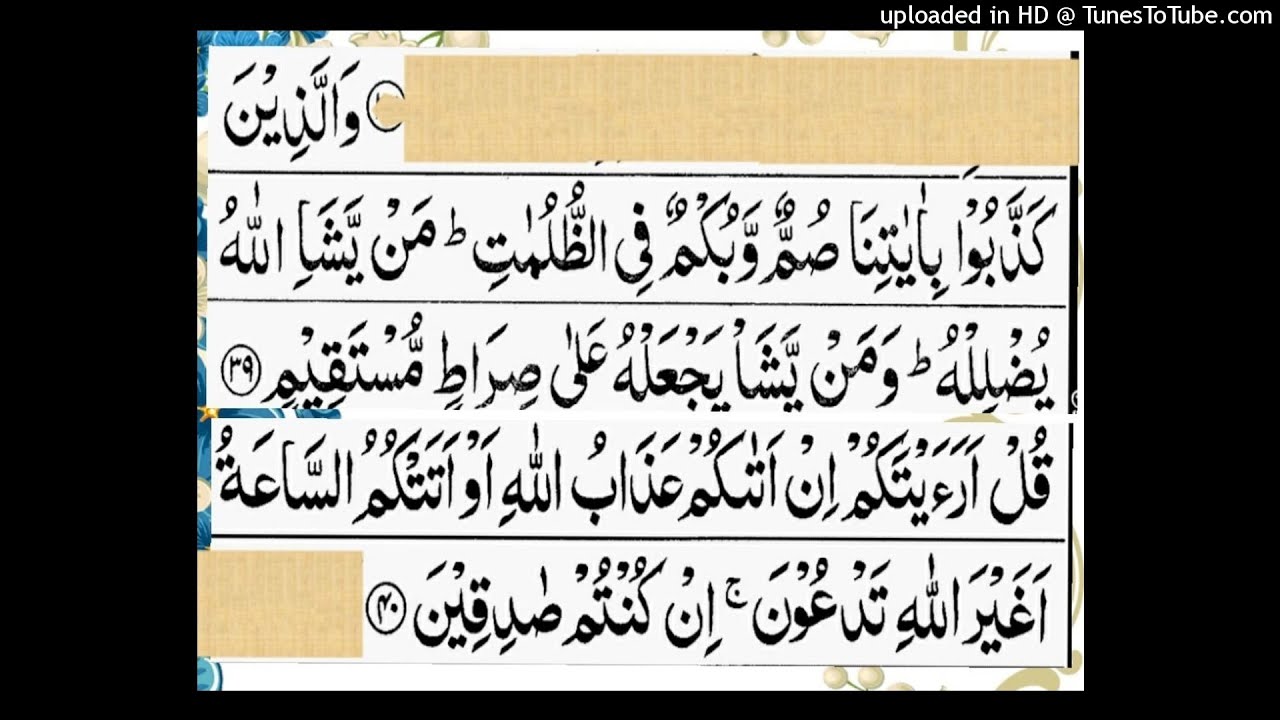 uploaded in HD @ TunesToTube.com
وَالَّذِيْنَ
كَذَّبُوْا بِاٰيٰتِنَا صُمٌّ وَّبُكْمٌ فِى الظُّلُمٰتِ ؕ مَنْ يَّشَاِ اللّٰهُ
يُضْلِلْهُ ؕ وَمَنْ يَّشَاْ يَجْعَلْهُ عَلٰى صِرَاطٍ مُّسْتَقِيْمٍ ۳۹
قُلْ اَرَءَيْتَكُمْ اِنْ اَتٰٮكُمْ عَذَابُ اللّٰهِ اَوْ اَتَتْكُمُ السَّاعَةُ
اَغَيْرَ اللّٰهِ تَدْعُوْنَ ۚ اِنْ كُنْتُمْ صٰدِقِيْنَ ۴۰